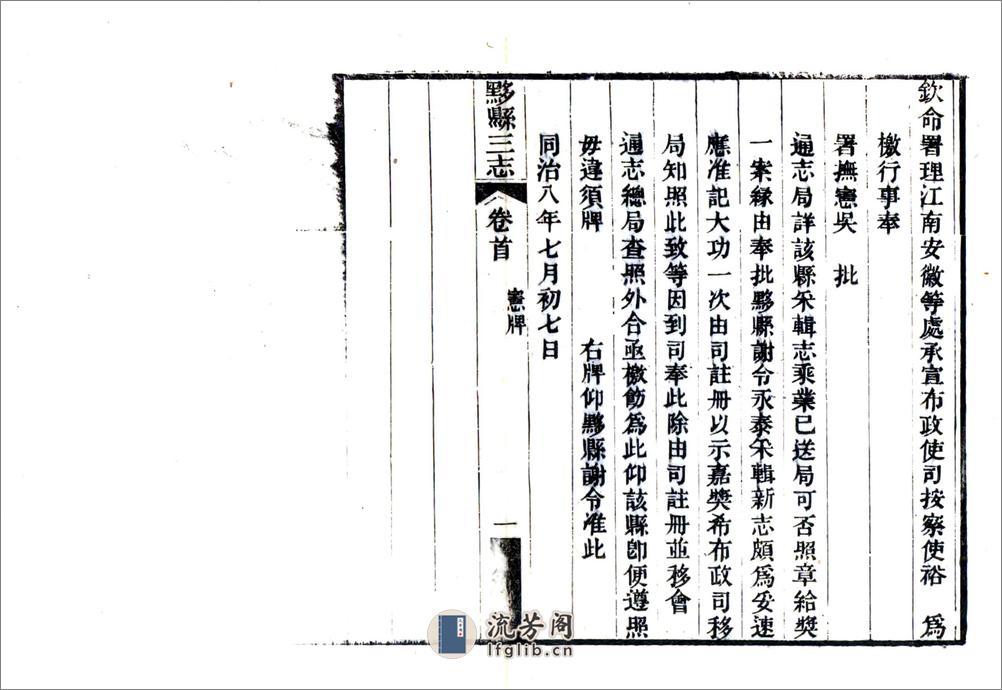 欽命署理江南安徽等處承宣布政使司按察使裕　爲
檄行事奉
署撫憲吳　批
通志局詳該縣采輯志乘業已送局可否照章給獎
一案緣由奉批黟縣謝令永泰采輯新志頗爲妥速
應准記大功一次由司註册以示嘉獎希布政司移
局知照此致等因到司奉此除由司註册並移會
通志總局查照外合亟檄飭爲此仰該縣卽便遵照
毋違須牌　　　右牌仰黟縣謝令准此
同治八年七月初七日
憲牌
黟縣三志　卷首　一
流芳阁
lfglib.cn